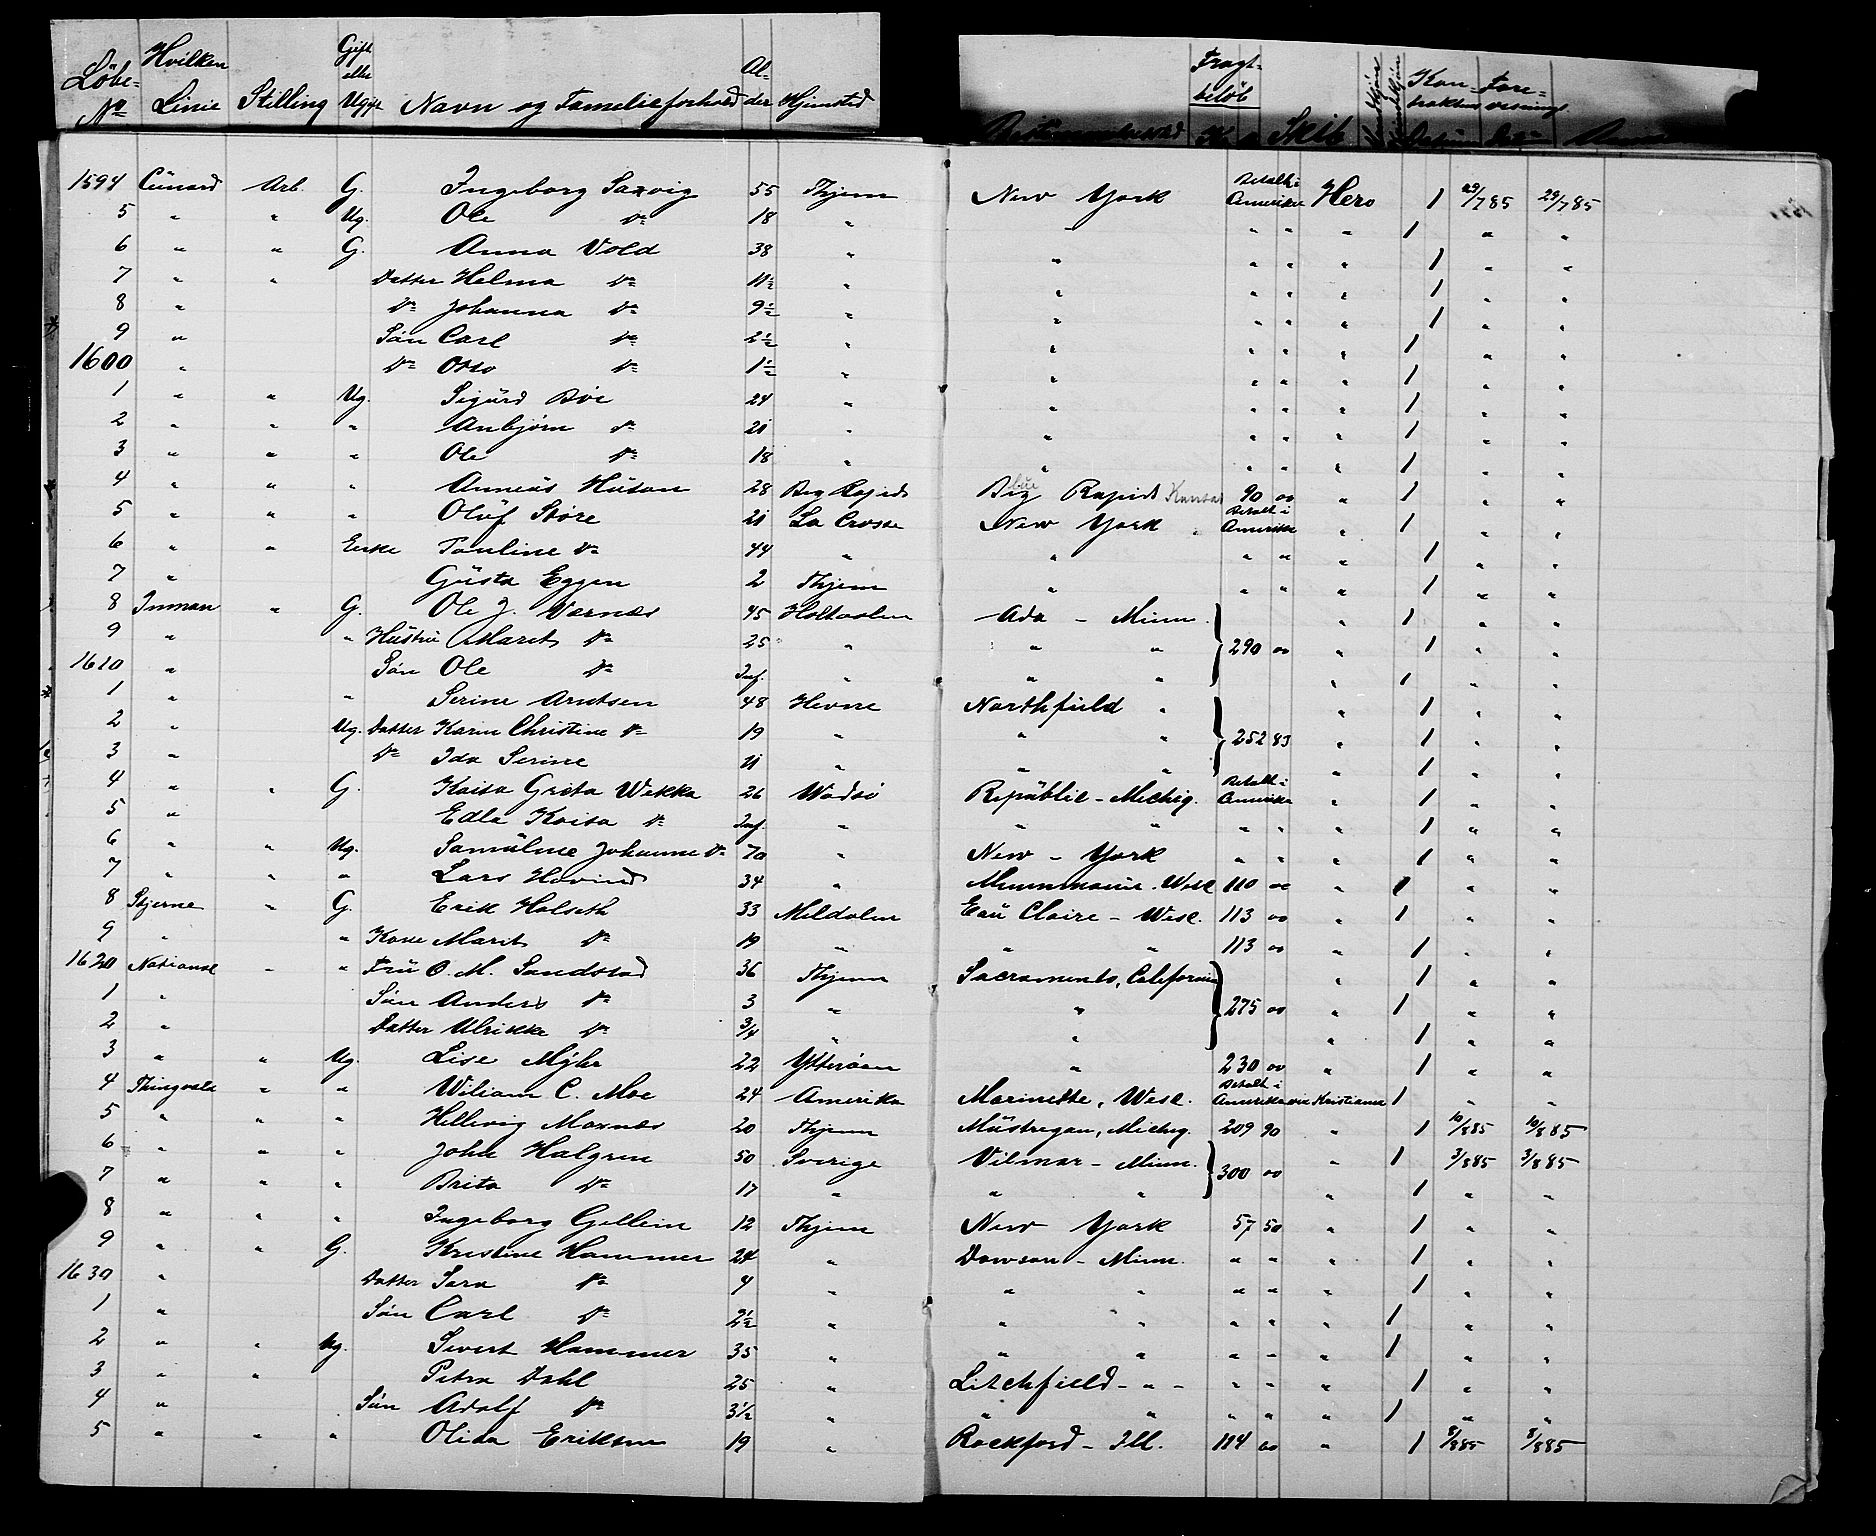 Löbe- No Hvilken Linie Stilling Gift eller Ugift Navn og Familieforhold Alder Hjemsted Fragtbelöb Kr Skib Kontraktens Datum
1594 Cunard Arb. G. Ingeborg Saxvig 55 Thjem New York Betalt i Amerika Hero 1 29/7 85 29/7 85
5 " " Ug. Ole Do 18 " " " " " 1 " "
6 " " G. Anna Vold 38 " " " " " 1 " "
7 " " Datter Helma Do 11½ " " " " " 1 " "
8 " Do Johanna Do 9½ " " " " " 1 " "
9 " Søn Carl Do 2½ " " " " " 1 " "
1600 " Do Otto Do 1½ " " " " " 1 " "
1 " " Ug. Sigurd Böe 24 " " " " " 1 " "
2 " " " Anbjörn Do 21 " " " " " 1 " "
3 " " " Ole Do 18 " " " " " 1 " "
4 " " " Anneus Husan 28 Big Rapids Big Rapids Kansas 90 00 " 1 " "
5 " " " Oluf Störe 21 La Crosse New York Betalt i Amerika " 1 " "
6 " " Enke Pauline Do 44 " " " " " 1 " "
7 " Gusta Eggen 2 Thjem " " " " 1 " "
8 Inman " G. Ole J. Værnæs 45 Holtaalen Ada - Minn. " 1 " "
9 " " Hustru Marit Do 25 " " " 290 00 " 1 " "
1610 " Søn Ole Do Inf. " " " " 1 " "
1 " " Serine Arntsen 48 Hevne Northfield " " 1 " "
2 " Ug. Datter Karin Christine Do 19 " " " 252 83 " 1 " "
3 " Do Ida Serine 11 " " " " 1 " "
4 " " G. Kaisa Greta Wekka 26 Wadsö Republic - Michig. Betalt i Amerika " 1 " "
5 " Edla Kaisa Do Inf. " " " " " " 1 " "
6 " " Ug. Samuline Johanne Do 70 " New - York " " " 1 " "
7 " " " Lars Hovind 34 " Wisc. 110 00 " 1 " "
8 Stjerne " G. Erik Halseth 33 Meldalen Eau Claire - Wisc. 113 00 " 1 " "
9 " " Kone Marit Do 19 " " " 113 00 " 1 " "
1620 National " " Fru O. M. Sandstad 36 Thjem Sacramento, California " 1 " "
1 " Søn Anders Do 3 " " 275 00 " 1 " "
2 " Datter Ulrikke Do 3/4 " " " 1 " "
3 " " Ug. Lise Myhr 22 Ytterøen " 230 00 " 1 " "
4 Thingvalla " " Wiliam C. Moe 24 Amerika Marinette, Wisc. Betalt i Amerika via Kristiania 1 " "
5 " " " Hellevig Moxnes 20 Thjem Mustregan, Michig. 209 90 " 1 10/8 85 10/8 85
6 " " " John Halgren 50 Sverige Vilmar - Minn. 300 00 " 1 3/8 85 3/8 85
7 " " " Brita Do 17 " " " " 1 " "
8 " " " Ingeborg Gellein 12 Thjem New York 57 50 " 1 " "
9 " " G. Kristine Hammer 24 " Dawson - Minn. " " " 1 " "
1630 " Datter Sara Do 4 " " " " " " 1 " "
1 " Søn Carl Do 2½ " " " " " " 1 " "
2 " " Ug. Sivert Hammer 35 " " " " " " 1 " "
3 " " Petra Dahl 25 " Litchfield - " - " " " 1 " "
4 " Søn Adolf Do 3½ " " " " " 1 " "
5 " " " Olida Eriksen 19 " Rockford - Ill. 114 00 " 1 8/8 85 8/8 85